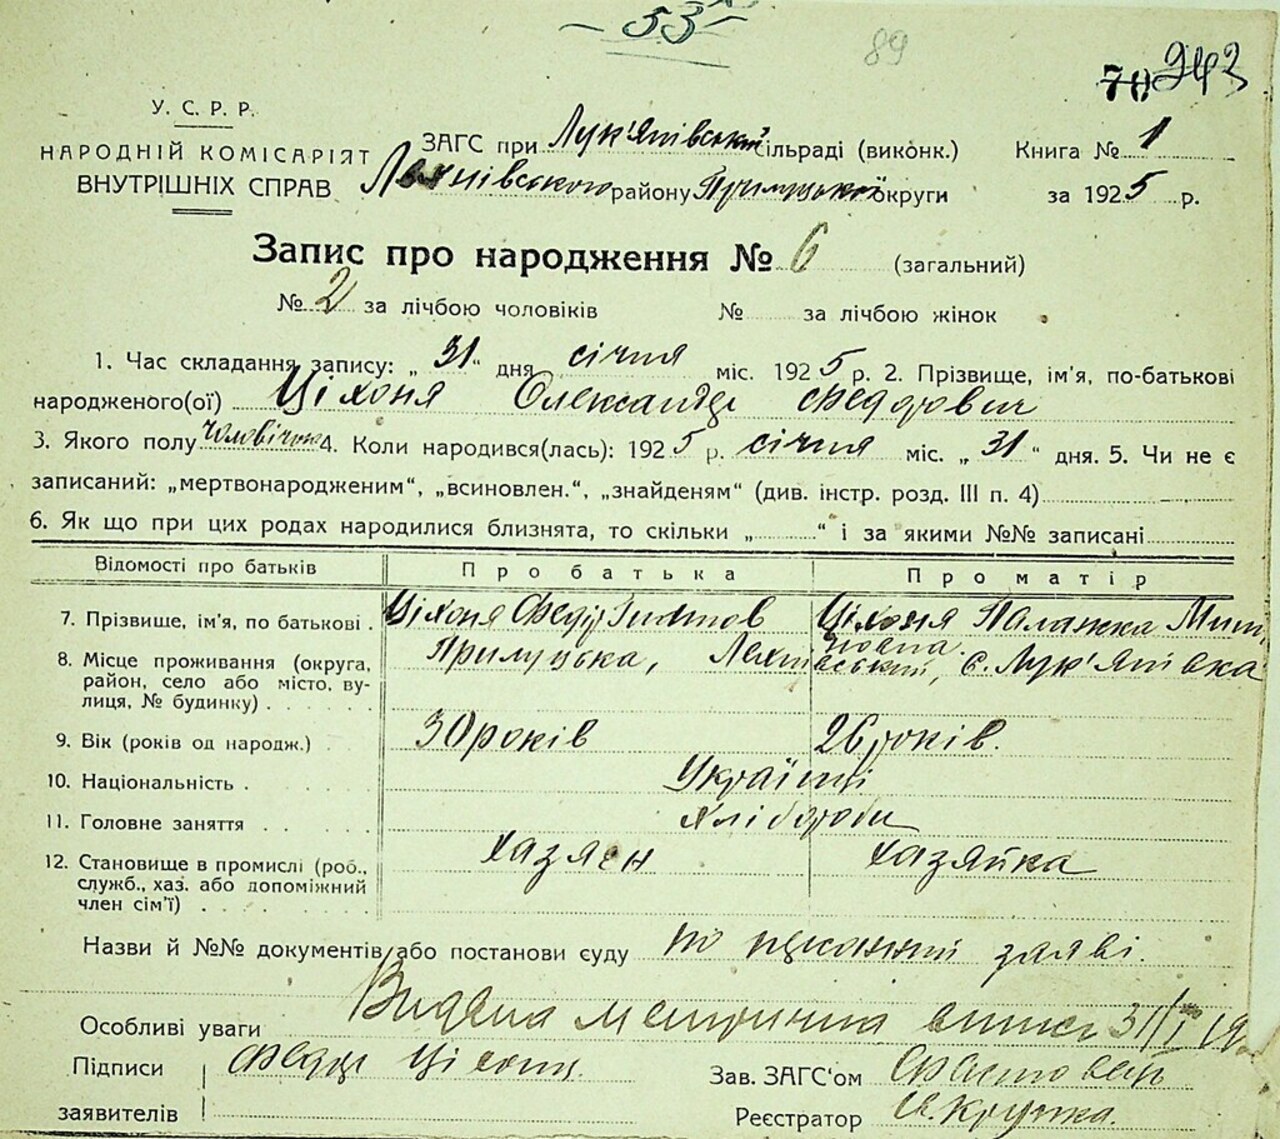 53
89
70 243
У. С. Р. Р.
НАРОДНІЙ КОМІСАРІЯТ
ВНУТРІШНІХ СПРАВ
ЗАГС при Лук'янівській сільраді (виконк.) Книга № 1
Лехнівського району Прилуцької округи за 1925 р.
Запис про народження № 6 (загальний)
№ 2 за лічбою чоловіків № за лічбою жінок
1. Час складання запису: „ 31 “ дня січня міс. 1925 р. 2. Прізвище, ім'я, по-батькові
народженого(ої) Ціхоня Олександр Федорович
3. Якого полу чоловічого 4. Коли народився(лась): 1925 р. січня міс. „ 31 “ дня. 5. Чи не є
записаний: „мертвонародженим“, „всиновлен.“, „знайденям“ (див. інстр. розд. III п. 4)
6. Як що при цих родах народилися близнята, то скільки „ “ і за якими №№ записані
Відомості про батьків Про батька Про матір
7. Прізвище, ім'я, по батькові . Ціхоня Федір Ціхоня Палажка
8. Місце проживання (округа, район, село або місто, ву-
лиця, № будинку) . . . . . . Прилуцька, Лехнівський, с. Лук'янівка
9. Вік (років од народж.) . 30 років 26 років.
10. Національність . . . . . . Українці
11. Головне заняття . . . . . Хлібороби
12. Становище в промислі (роб., хазяєн хазяйка
служб., хаз. або допоміжний
член сім'ї) . . . . . . . . .
Назви й №№ документів або постанови суду по заяві.
Особливі уваги Видана метрична випис 31/I 19
Підписи Федір Ціхоня Зав. ЗАГС'ом
заявителів Реєстратор